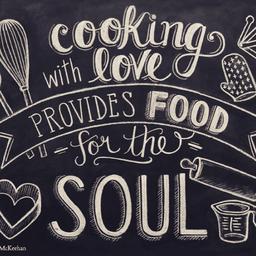 cooking
with love
PROVIDES FOOD
for the
SOUL
McKeehan